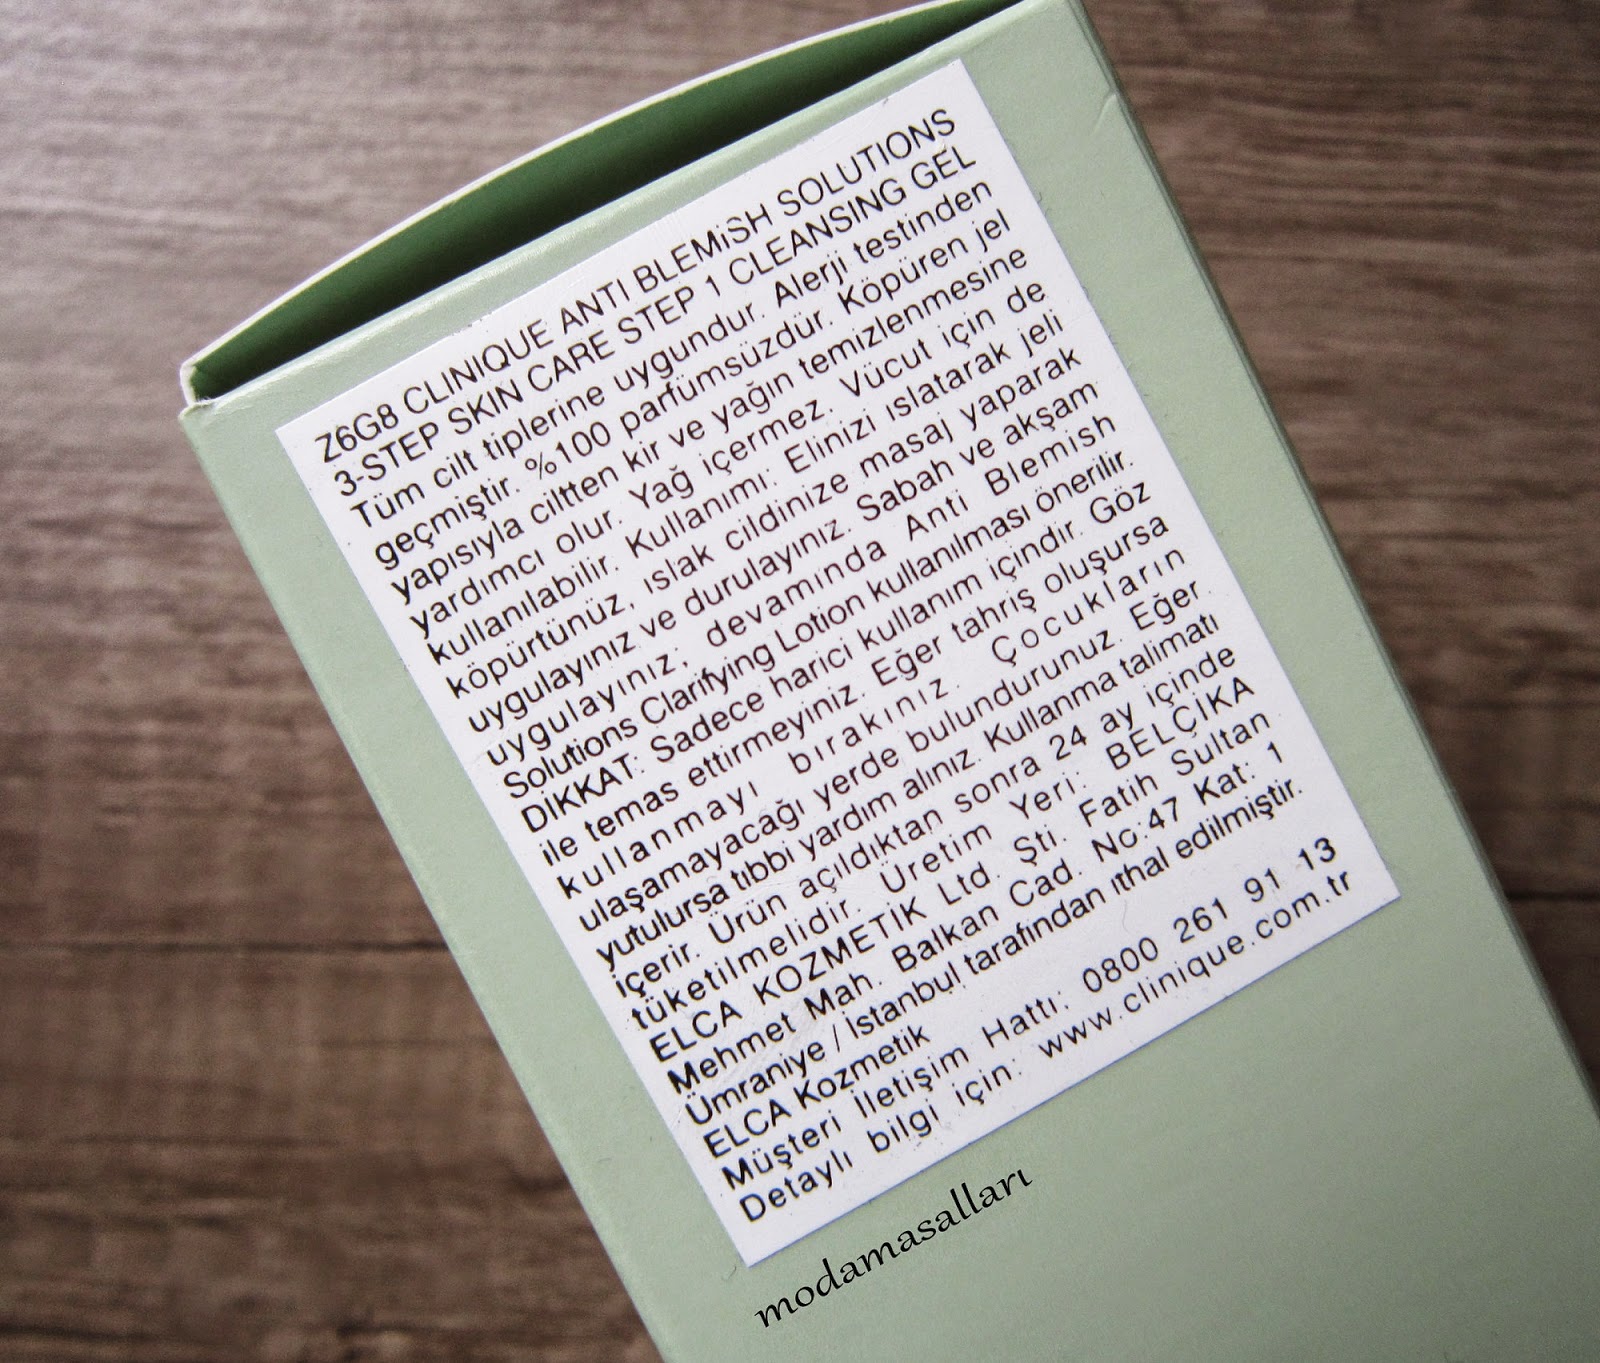 Z6G8 CLINIQUE ANTI BLEMiSH SOLUTIONS
3-STEP SKIN CARE STEP 1 CLEANSING GEL
Tüm cilt tiplerine uygundur. Alerji testinden
geçmiştir. %100 parfümsüzdür. Köpüren jel
yapısıyla ciltten kir ve yağın temizlenmesine
yardımcı olur. Yağ içermez. Vücut için de
kullanılabilir. Kullanımı: Elinizi ıslatarak jeli
köpürtünüz, ıslak cildinize masaj yaparak
uygulayınız ve durulayınız. Sabah ve akşam
uygulayınız; devamında Anti Blemish
Solutions Clarifying Lotion kullanılması önerilir.
DİKKAT: Sadece harici kullanım içindir. Göz
ile temas ettirmeyiniz. Eğer tahriş oluşursa
kullanmayı bırakınız. Çocukların
ulaşamayacağı yerde bulundurunuz. Eğer
yutulursa tıbbi yardım alınız. Kullanma talimatı
içerir. Ürün açıldıktan sonra 24 ay içinde
tüketilmelidir. Üretim Yeri: BELÇİKA
ELCA KOZMETİK Ltd. Şti. Fatih Sultan
Mehmet Mah. Balkan Cad. No:47 Kat: 1
Ümraniye / İstanbul tarafından ithal edilmiştir.
ELCA Kozmetik
Müşteri İletişim Hattı: 0800 261 91 13
Detaylı bilgi için: www.clinique.com.tr
modamasalları